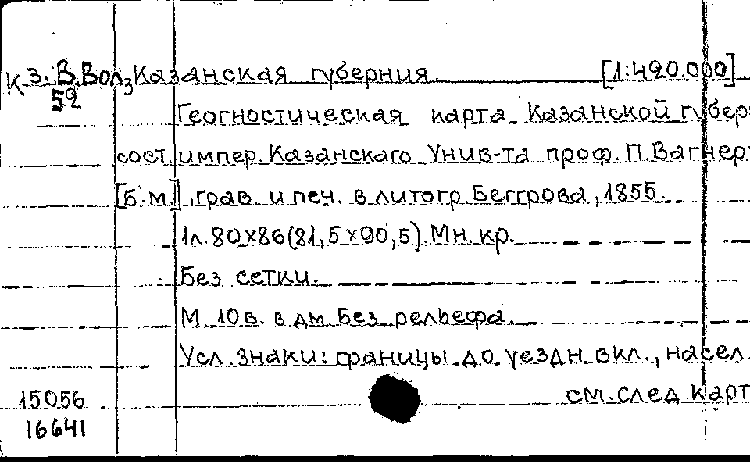 К З. В.Вол₃ Казанская губерния [1:420.000]
52
Геогностическая карта Казанской губер
сост. импер. Казанского Унив-та проф. П Вагнер
[б.м.], грав. и печ. в литогр Беггрова, 1855.
1л. 80×86(81,5×90,5). Мн. кр.
Без сетки.
М 10 в. в дм. Без рельефа.
Усл. знаки: границы до уездн вкл., насел.
15056 см. след карт
16641